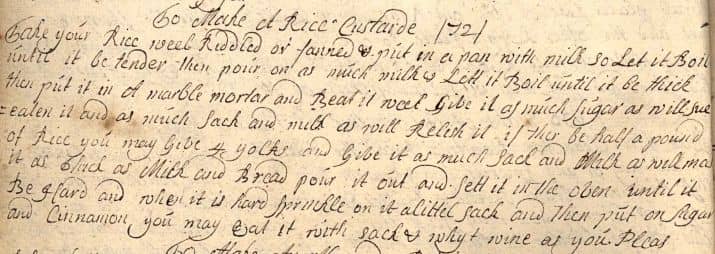 To Make A Rice Custarde 1721
Take your Rice weel Riddled or fanned & put in a pan with milk so Let it Boil
until it be tender then pour on as much milk & Lett it Boil until it be thick
then put it in A marble mortar and Beat it weel Gibe it as much sugar as will swe
=eaten it and as much Sack and milk as will Relish it if ther be half a pound
of Rice you may Gibe 4 yolks and Gibe it as much Sack and Milk as will ma
it as thick as Milk and Bread pour it out and Sett it in the oben until it
Be Hard and when it is hard sprinkle on it a littel sack and then put on Sugar
and Cinnamon you may Eat it with sack & whyt wine as you Pleas
To Make